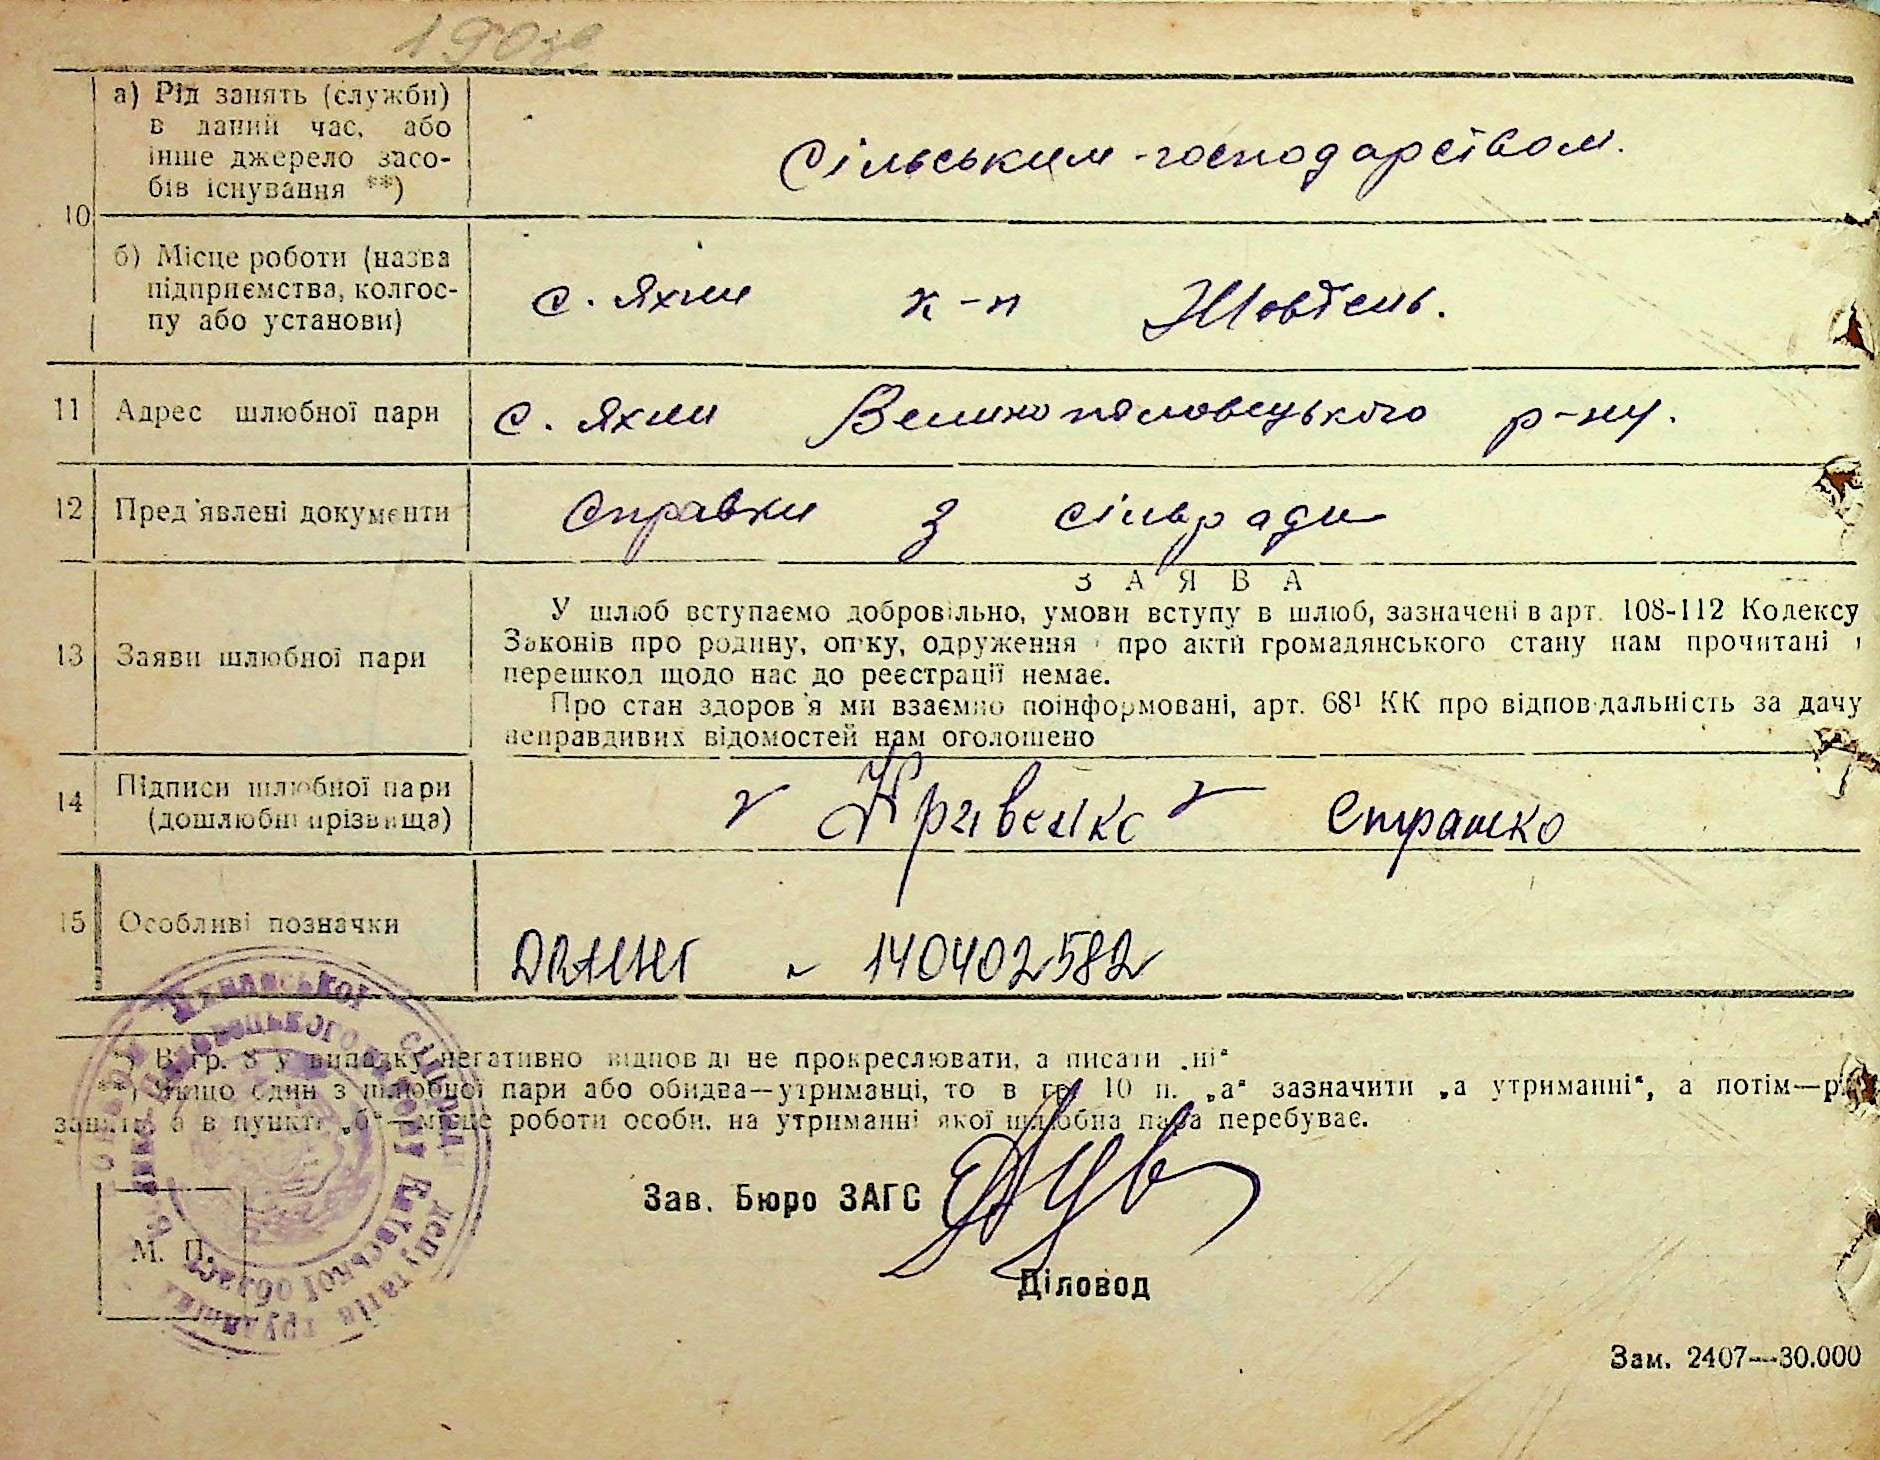 а) Рід занять (служби)
в даний час, або
інше джерело засо-
бів існування **)
сільським-господарством.
10
б) Місце роботи (назва
підприємства, колгос-
пу або установи)
с. Яхни к-п Жовтень.
11 Адрес шлюбної пари с. Яхни Великополовецького р-ну.
12 Пред'явлені документи справки з сільради
ЗАЯВА
У шлюб вступаємо добровільно, умови вступу в шлюб, зазначені в арт. 108-112 Кодексу
13 Заяви шлюбної пари
Законів про родину, опіку, одруження і про акти громадянського стану нам прочитані і
перешкод щодо нас до реєстрації немає.
Про стан здоров'я ми взаємно поінформовані, арт. 68¹ КК про відповідальність за дачу
неправдивих відомостей нам оголошено
14 Підписи шлюбної пари
(дошлюбні прізвища)
Кривенко Страшко
15 Особливі позначки
140402582
*) В гр. 8 у випадку негативно відповіді не прокреслювати, а писати „ні“
**) Якщо один з шлюбної пари або обидва—утриманці, то в гр. 10 п. „а“ зазначити „а утриманні“, а потім—рід
занять, а в пункті „б“—місце роботи особи, на утриманні якої шлюбна пара перебуває.
Зав. Бюро ЗАГС
М. П.
Діловод
Зам. 2407—30.000